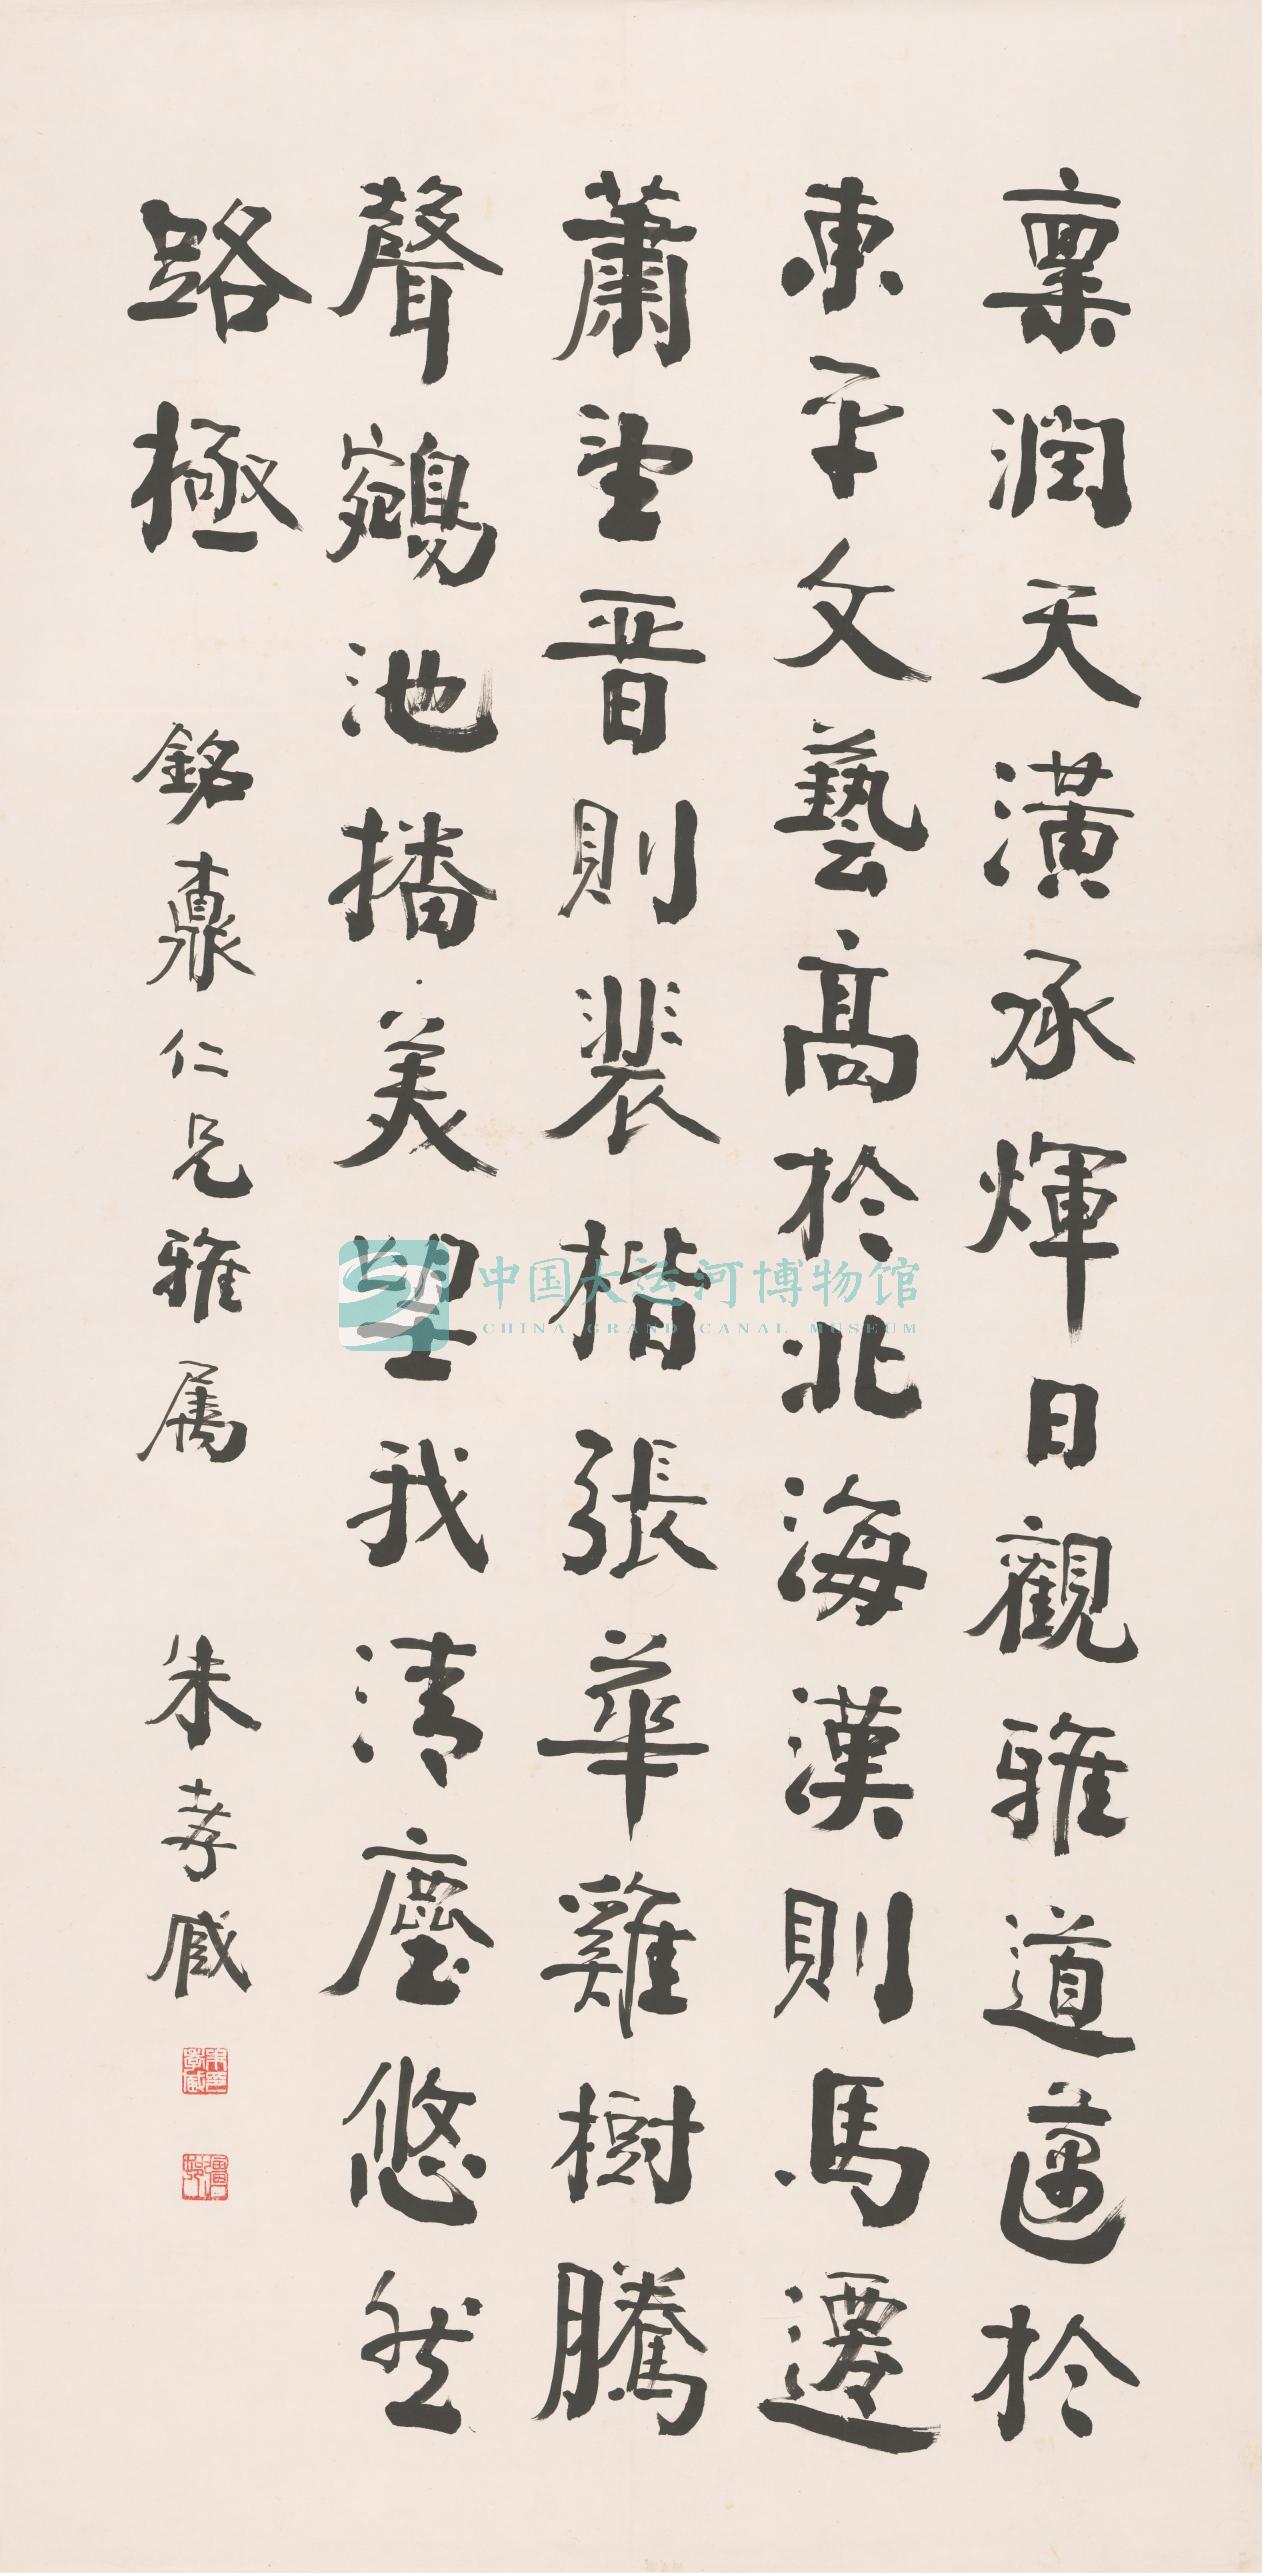 稟潤天潢承輝日觀雅道邁於
東平文藝高於北海漢則馬遷
蕭望晉則裴楷張華雞樹騰
聲鵷池播美望我清塵悠然
路極
銘鼒仁兄雅属
朱孝臧
中国大运河博物馆
CHINA GRAND CANAL MUSEUM